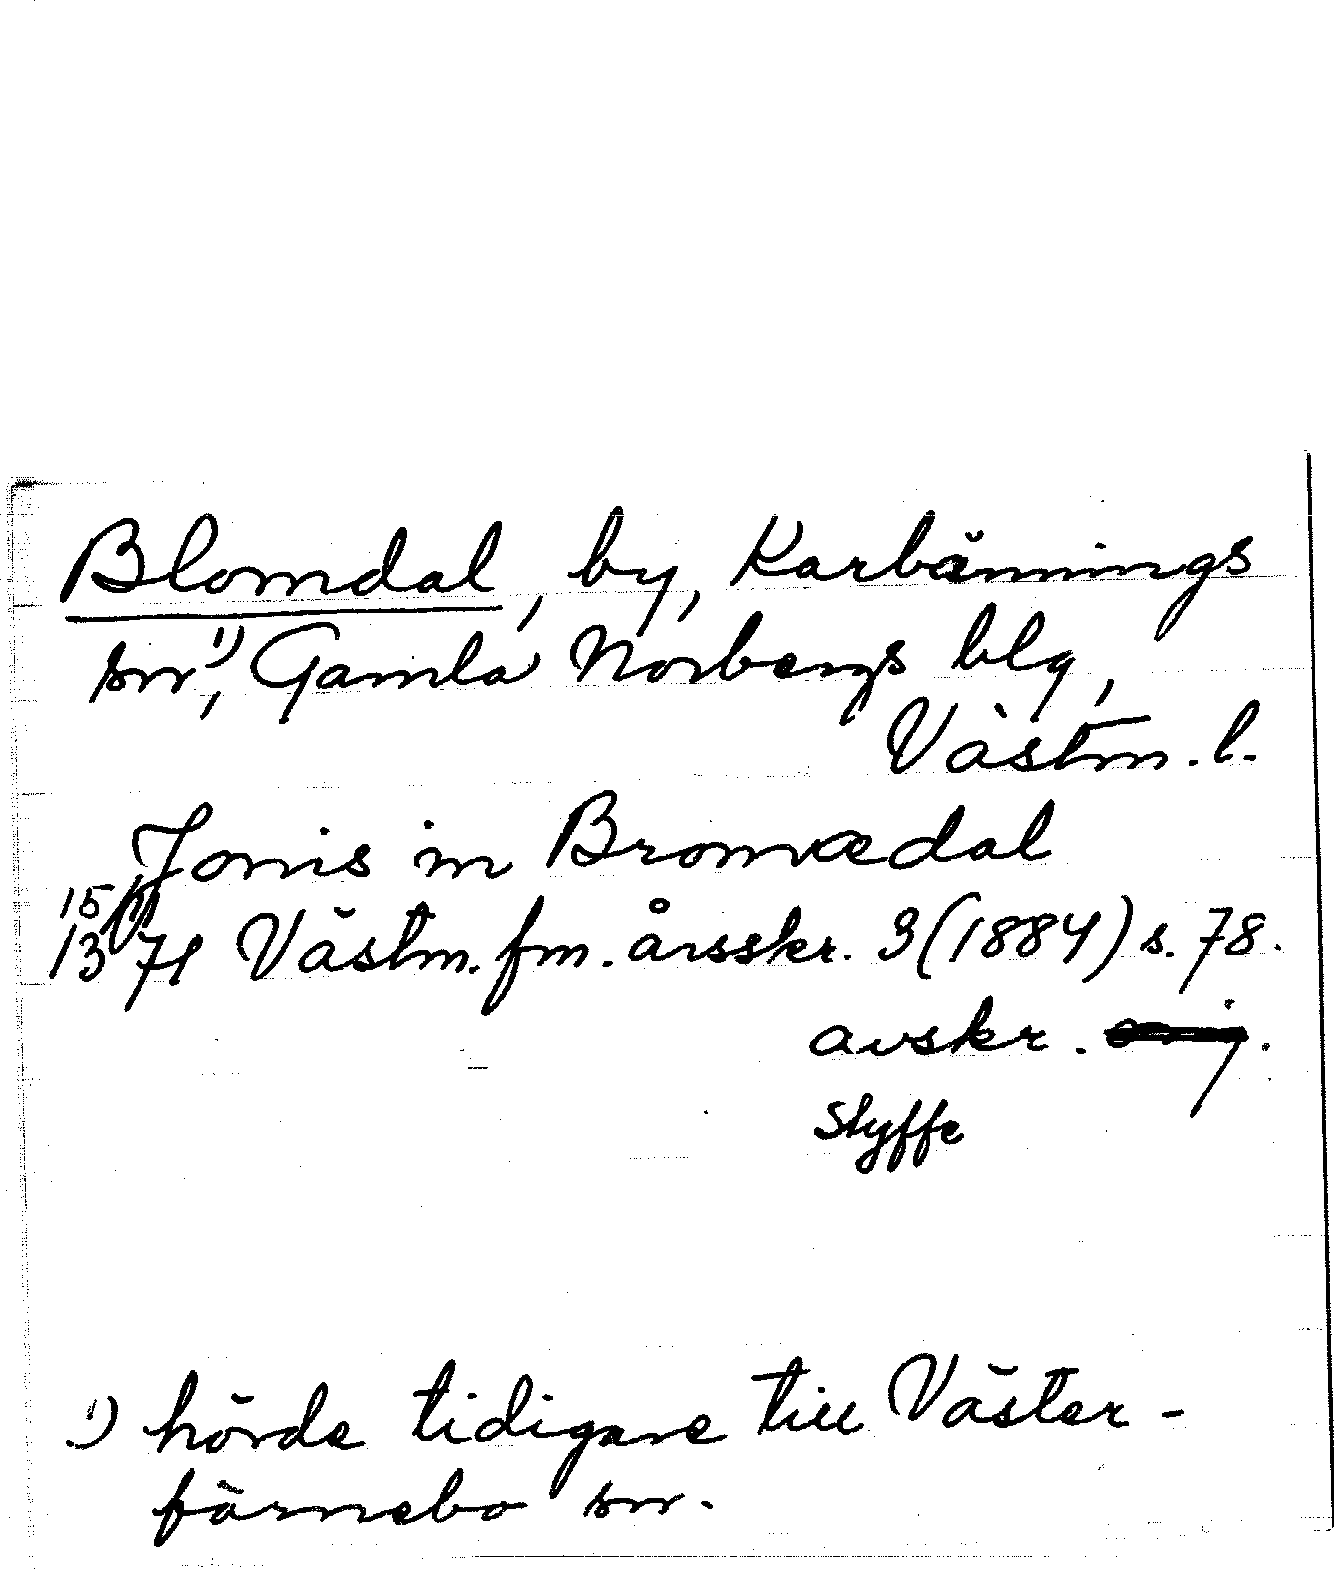 Blomdal, by, Karbännings
sn¹⁾, Gamla Norbergs blg,
Västm. l.
Jonis in Bromædal
15/11
1371 Västm. fm. årsskr. 3 (1884) s. 78.
avskr. orig.
Styffe
¹⁾ hörde tidigare till Väster-
färnebo sn.